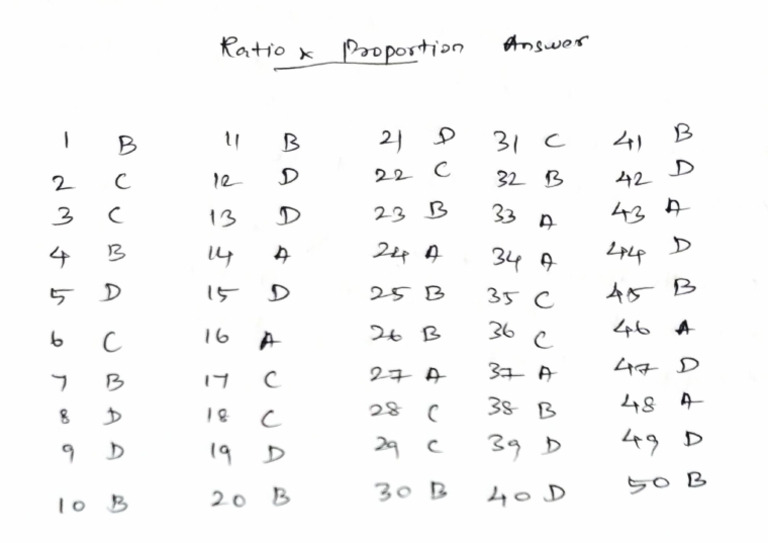 Ratio x Proportion Answer
1 B 11 B 21 D 31 C 41 B
2 C 12 D 22 C 32 B 42 D
3 C 13 D 23 B 33 A 43 A
4 B 14 A 24 A 34 A 44 D
5 D 15 D 25 B 35 C 45 B
6 C 16 A 26 B 36 C 46 A
7 B 17 C 27 A 37 A 47 D
8 D 18 C 28 C 38 B 48 A
9 D 19 D 29 C 39 D 49 D
10 B 20 B 30 B 40 D 50 B